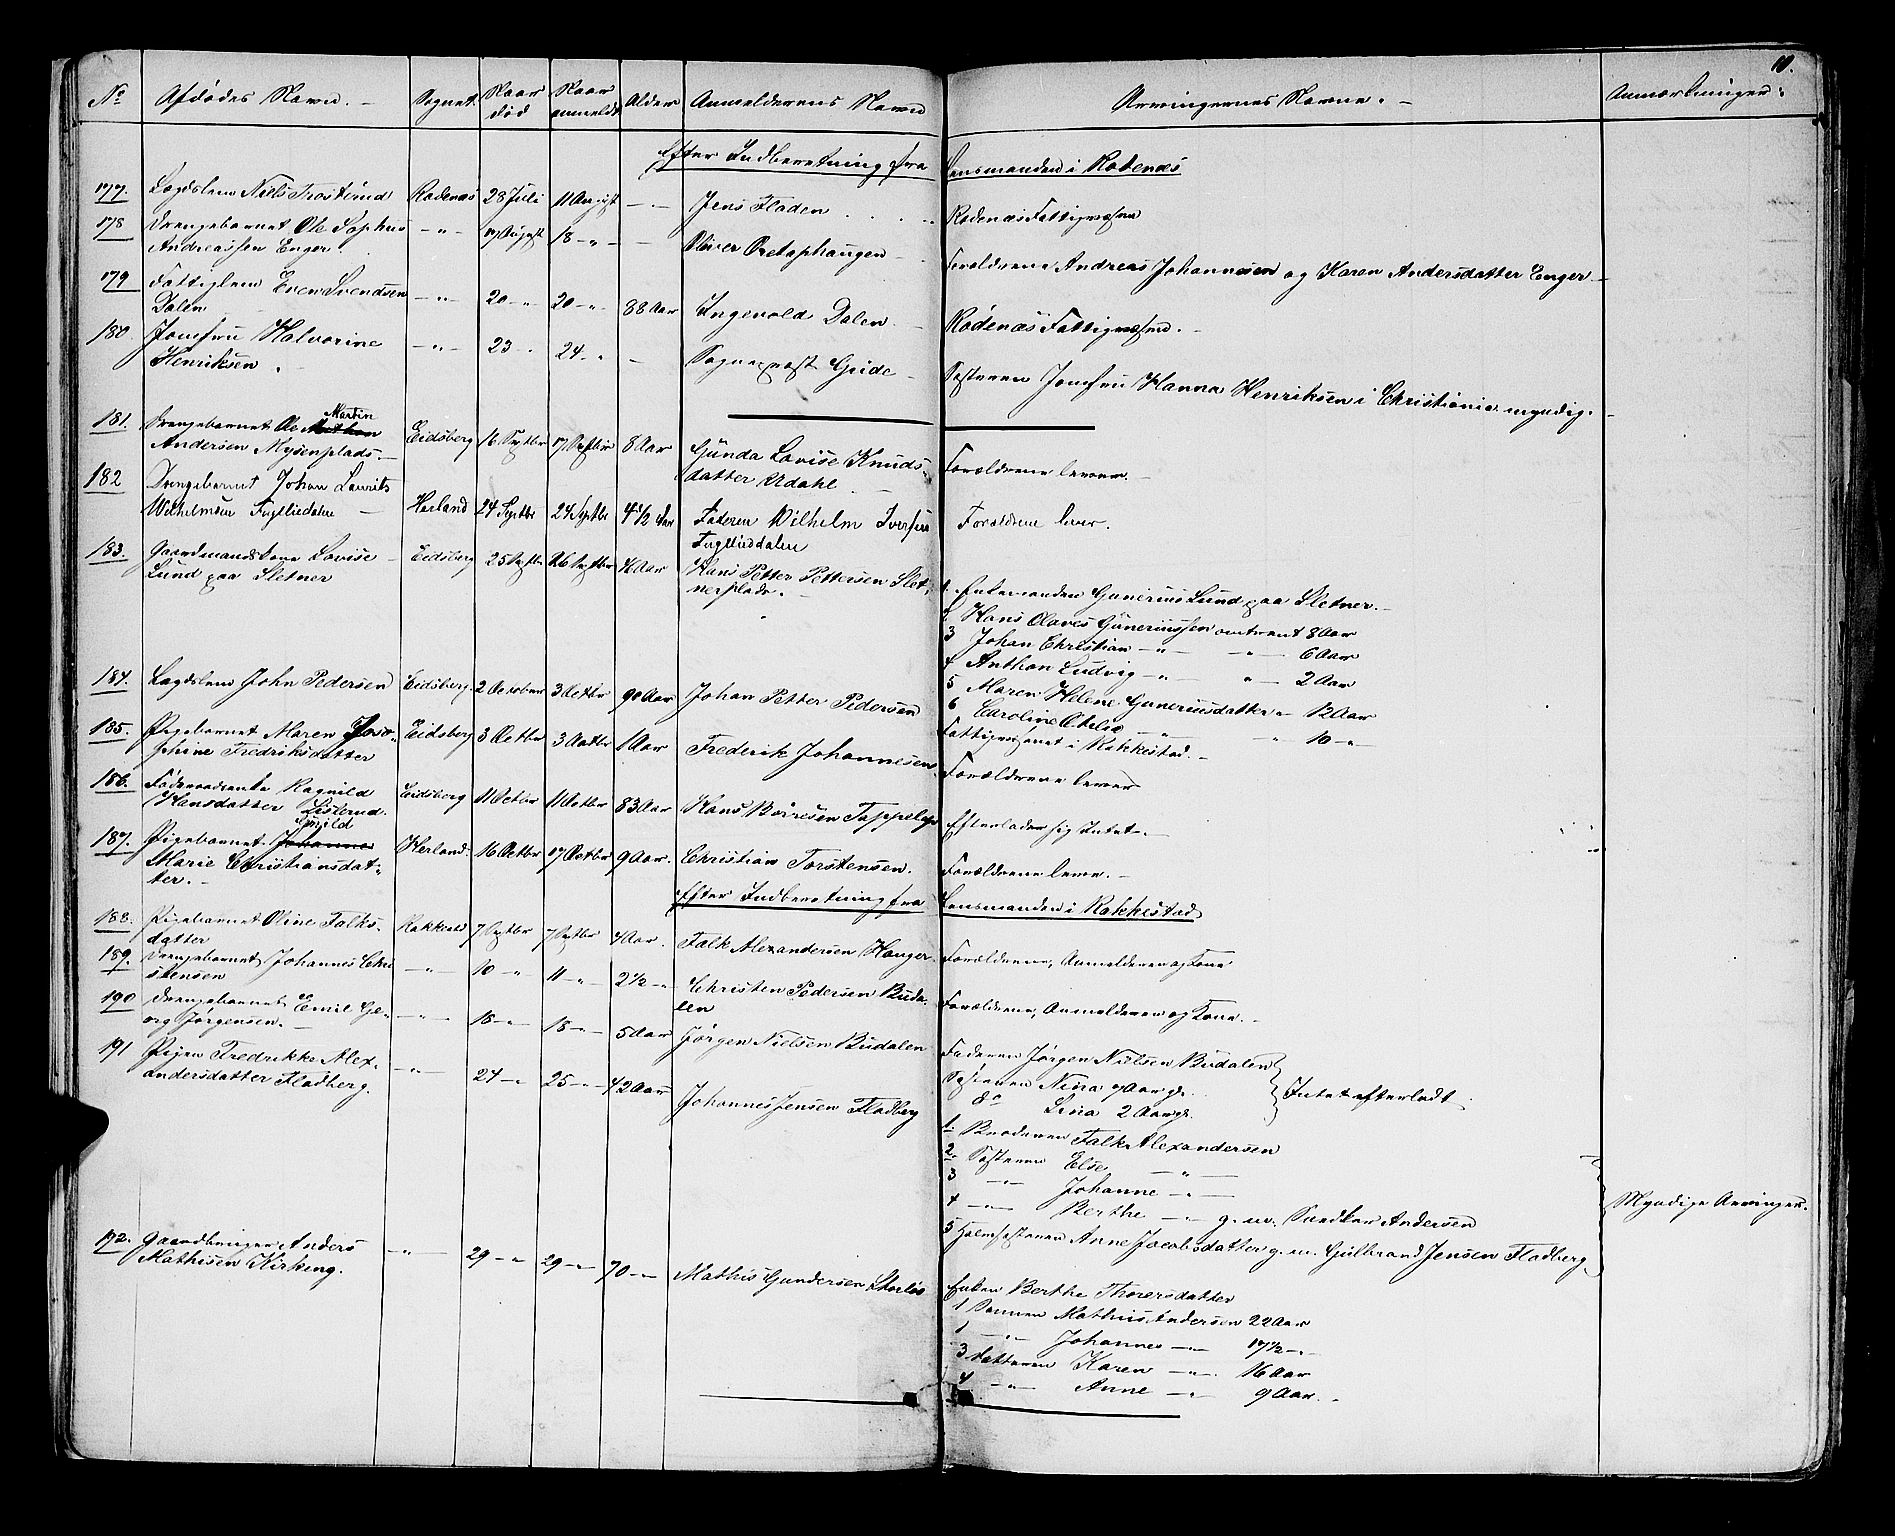 10.
No Afdødes Navn. Sognet. Naar død Naar anmeldt Alder Anmelderens Navn Arvingernes Navne. Anmærkninger.
Efter Indberetning fra Lensmanden i Rødenæs
177. Lægdslem Niels Trosterud Rødenæs 28 Juli 11 August — Jens Fladen Rødenæs Fattigvæsen
178 Drengebarnet Ole Sophus — " — 17 August 18 — " — — Oliver
Andreassen Enger. Forældrene Andreas Johannesen og Karen Andersdatter Enger
179 Fattiglem Even Svendsen — " — 20 — " 20 — " 88 Aar Ingevold Dalen Rødenæs Fattigvæsen.
Dalen
180. Jomfru Halvorine — " — 23 24 — " — Sogneprest Gride
Henriksen Søsteren Jomfru Hanna Henriksen i Christiania myndig.
Martin
181. Drengebarnet Ole Anthon Eidsberg 16 Septbr 17 Septbr 8 Aar Gunda Lovise Knuds- Forældrene lever.
Andersen Mysenplads. datter Udahl
182 Drengebarnet Johan Laurits
Wilhelmsen Fuglliedalen Herland 24 Septbr 24 Septbr 4 1/2 Aar Faderen Wilhelm Iversen Forældrene lever.
Fuglliedalen
183. Gaardmandskone Lovise Eidsberg 25 Septbr 26 Septbr Aar Hans Petter Pettersen Slet-
Lund paa Sletner nerplads.
1. Enkemanden Gunerius Lund paa Sletner.
2 Hans Olaves Guneriussen omtrent 8 Aar
3 Johan Christian — " — — " — 6 Aar
4 Anthon Ludvig — " — " — 2 Aar
5 Maren Helene Guneriusdatter " 12 Aar
6 Caroline Otelie — " — " 10 — "
184. Lægdslem John Pedersen Eidsberg. 2 October 3 Octbr 90 Aar Johan Petter Pedersen Fattigvæsenet i Rakkestad.
185. Pigebarnet Maren Jose- Eidsberg 3 Octbr 3 Octbr 1 Aar Frederik Johannesen. Forældrene lever
phine Fredriksdatter
186. Føderaadsenke Ragnild Eidsberg 11 Octbr 11 Octbr 83 Aar Hans Børresen Efterlader sig Intet.
Hansdatter Listerud.
187. Pigebarnet Johanne Herland. 16 Octbr 17 Octbr 9 Aar. Christian Torstensen. Forældrene lever.
Marie Christiansdat-
ter.
Efter Indberetning fra Lensmanden i Rakkestad
188. Pigebarnet Oline Falks- Rakkestd 7 Septbr 7 Septbr 4 Aar. Falk Alexandersen Hauger Forældrene, Anmelderen og Kone
datter
189. Drengebarnet Johannes Chri- — " — 10 " 11 — " 2 1/2 — " Christen Pedersen Buda- Forældrene, Anmelderen og Kone.
stensen len
190 Drengebarnet Emil Ge- — " — 18 — " 18 — " 5 Aar Jørgen Nielsen Budalen
org Jørgensen.
Faderen Jørgen Nielsen Budalen
Søsteren Nina 7 Aar gl. Intet efterladt
do Lina 2 Aar gl.
191 Pigen Fredrikke Alex- — " — 24 — " 25 — " 42 Aar Johannes Jensen Fladberg
andersdatter Fladberg.
1. Broderen Falk Alexandersen
2. Søsteren Else — " —
3 — " Johanne — " —
4 — " — Berthe — " g. m. Andersen Myndige Arvinger.
5 Halvsøsteren Anne Jacobsdatter g. m. Gulbrand Jensen Fladberg
192. Gaardbruger Anders — " — 29 — " 29 — " 70 — " Mathis Gundersen
Mathisen Kirkeng.
Enken Berthe Thoresdatter
1 Sønnen Mathis Andersen 22 Aar
— " — Johannes — " 17 1/2 — "
3 Datteren Karen — " 16 Aar
4 — " — Anne — " 9 Aar.